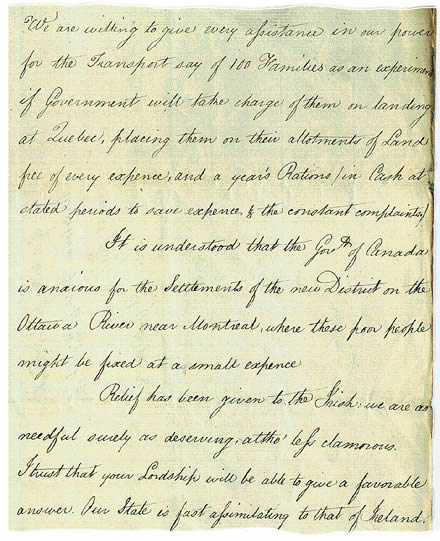 We are willing to give every assistance in our power
for the Transport say of 100 Families as an experiment
if Government will take charge of them on landing
at Quebec, placing them on their allotments of Land
free of every expence, and a year's Rations /in Cash at
stated periods to save expence, & the constant complaints/
It is understood that the Govt. of Canada
is anxious for the Settlements of the new District on the
Ottawa River near Montreal, where these poor people
might be fixed at a small expence
Relief has been given to the Irish: we are as
needful surely as deserving, altho' less clamorous.
I trust that your Lordship will be able to give a favorable
answer. Our State is fast assimilating to that of Ireland.